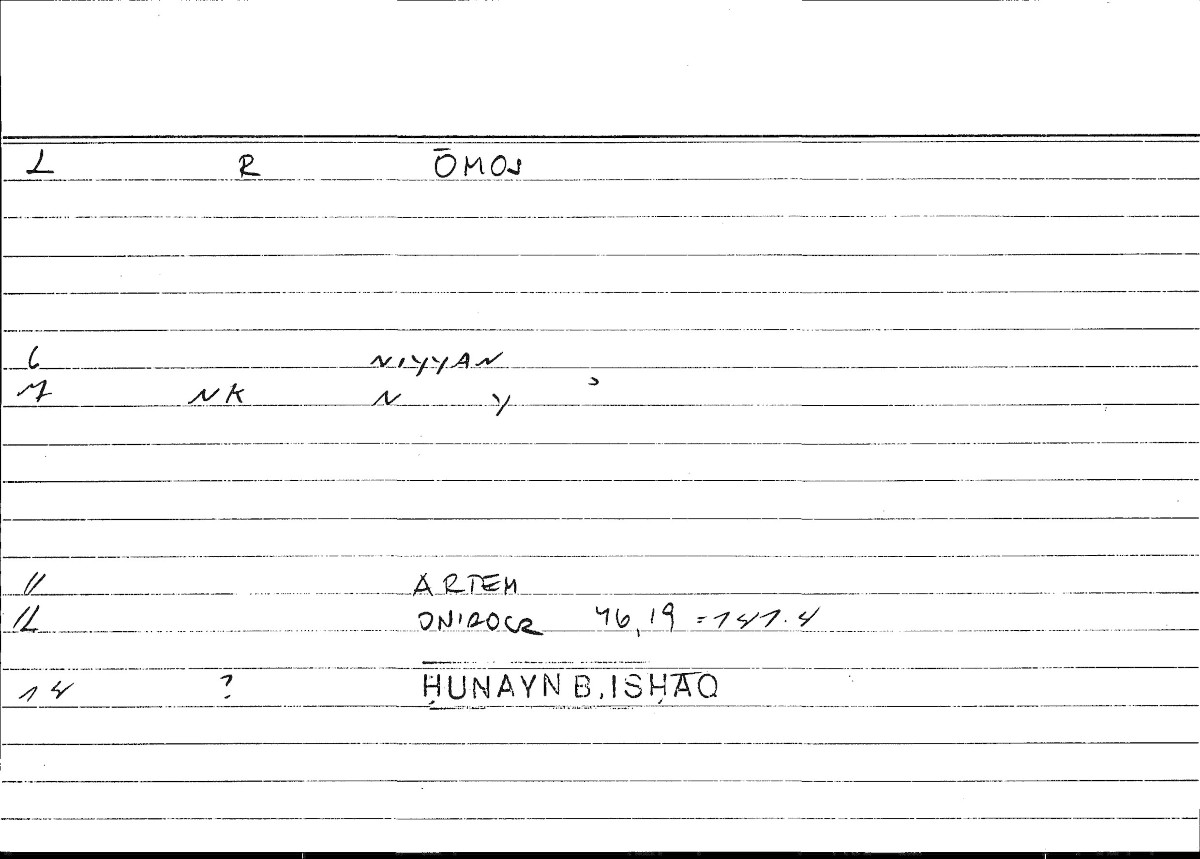 L R ŌMOS
6 NIYYAN
7 NK N Y
11 ARTEM
12 ONIROCR 46,19 = 141.4
14 ? ḤUNAYN B. ISḤĀQ